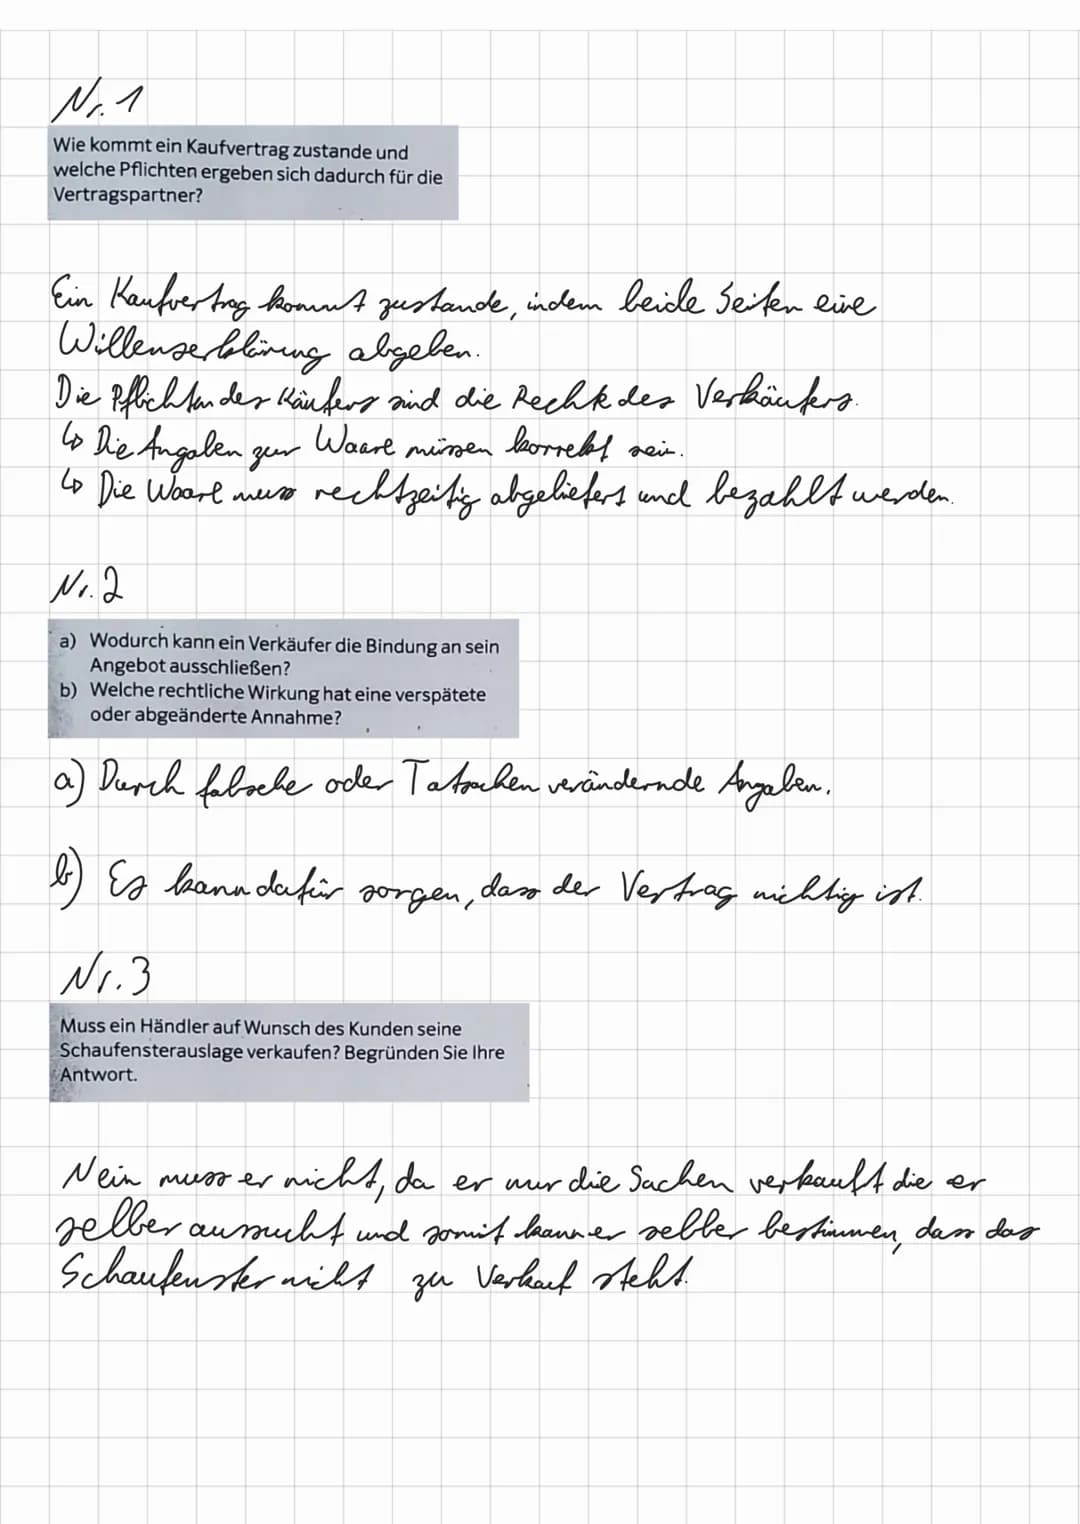 Nr. 1
Wie kommt ein Kaufvertrag zustande und
welche Pflichten ergeben sich dadurch für die
Vertragspartner?
Ein Kaufvertrag kommt zustande, indem beide Seiten eine
Willenserklärung abgeben.
Die Pflichten des Käufers sind die Rechte des Verkäufers.
↳ Die Angaben zur Waare müssen korrekt sein.
↳ Die Waare muss rechtzeitig abgeliefert und bezahlt werden.
Nr. 2
a) Wodurch kann ein Verkäufer die Bindung an sein
Angebot ausschließen?
b) Welche rechtliche Wirkung hat eine verspätete
oder abgeänderte Annahme?
a) Durch falsche oder Tatsachen verändernde Angaben.
b) Es kann dafür sorgen, dass der Vertrag nichtig ist.
Nr. 3
Muss ein Händler auf Wunsch des Kunden seine
Schaufensterauslage verkaufen? Begründen Sie Ihre
Antwort.
Nein muss er nicht, da er nur die Sachen verkauft die er
selber aussucht und somit kann er selber bestimmen, dass das
Schaufenster nicht zu Verkauf steht.